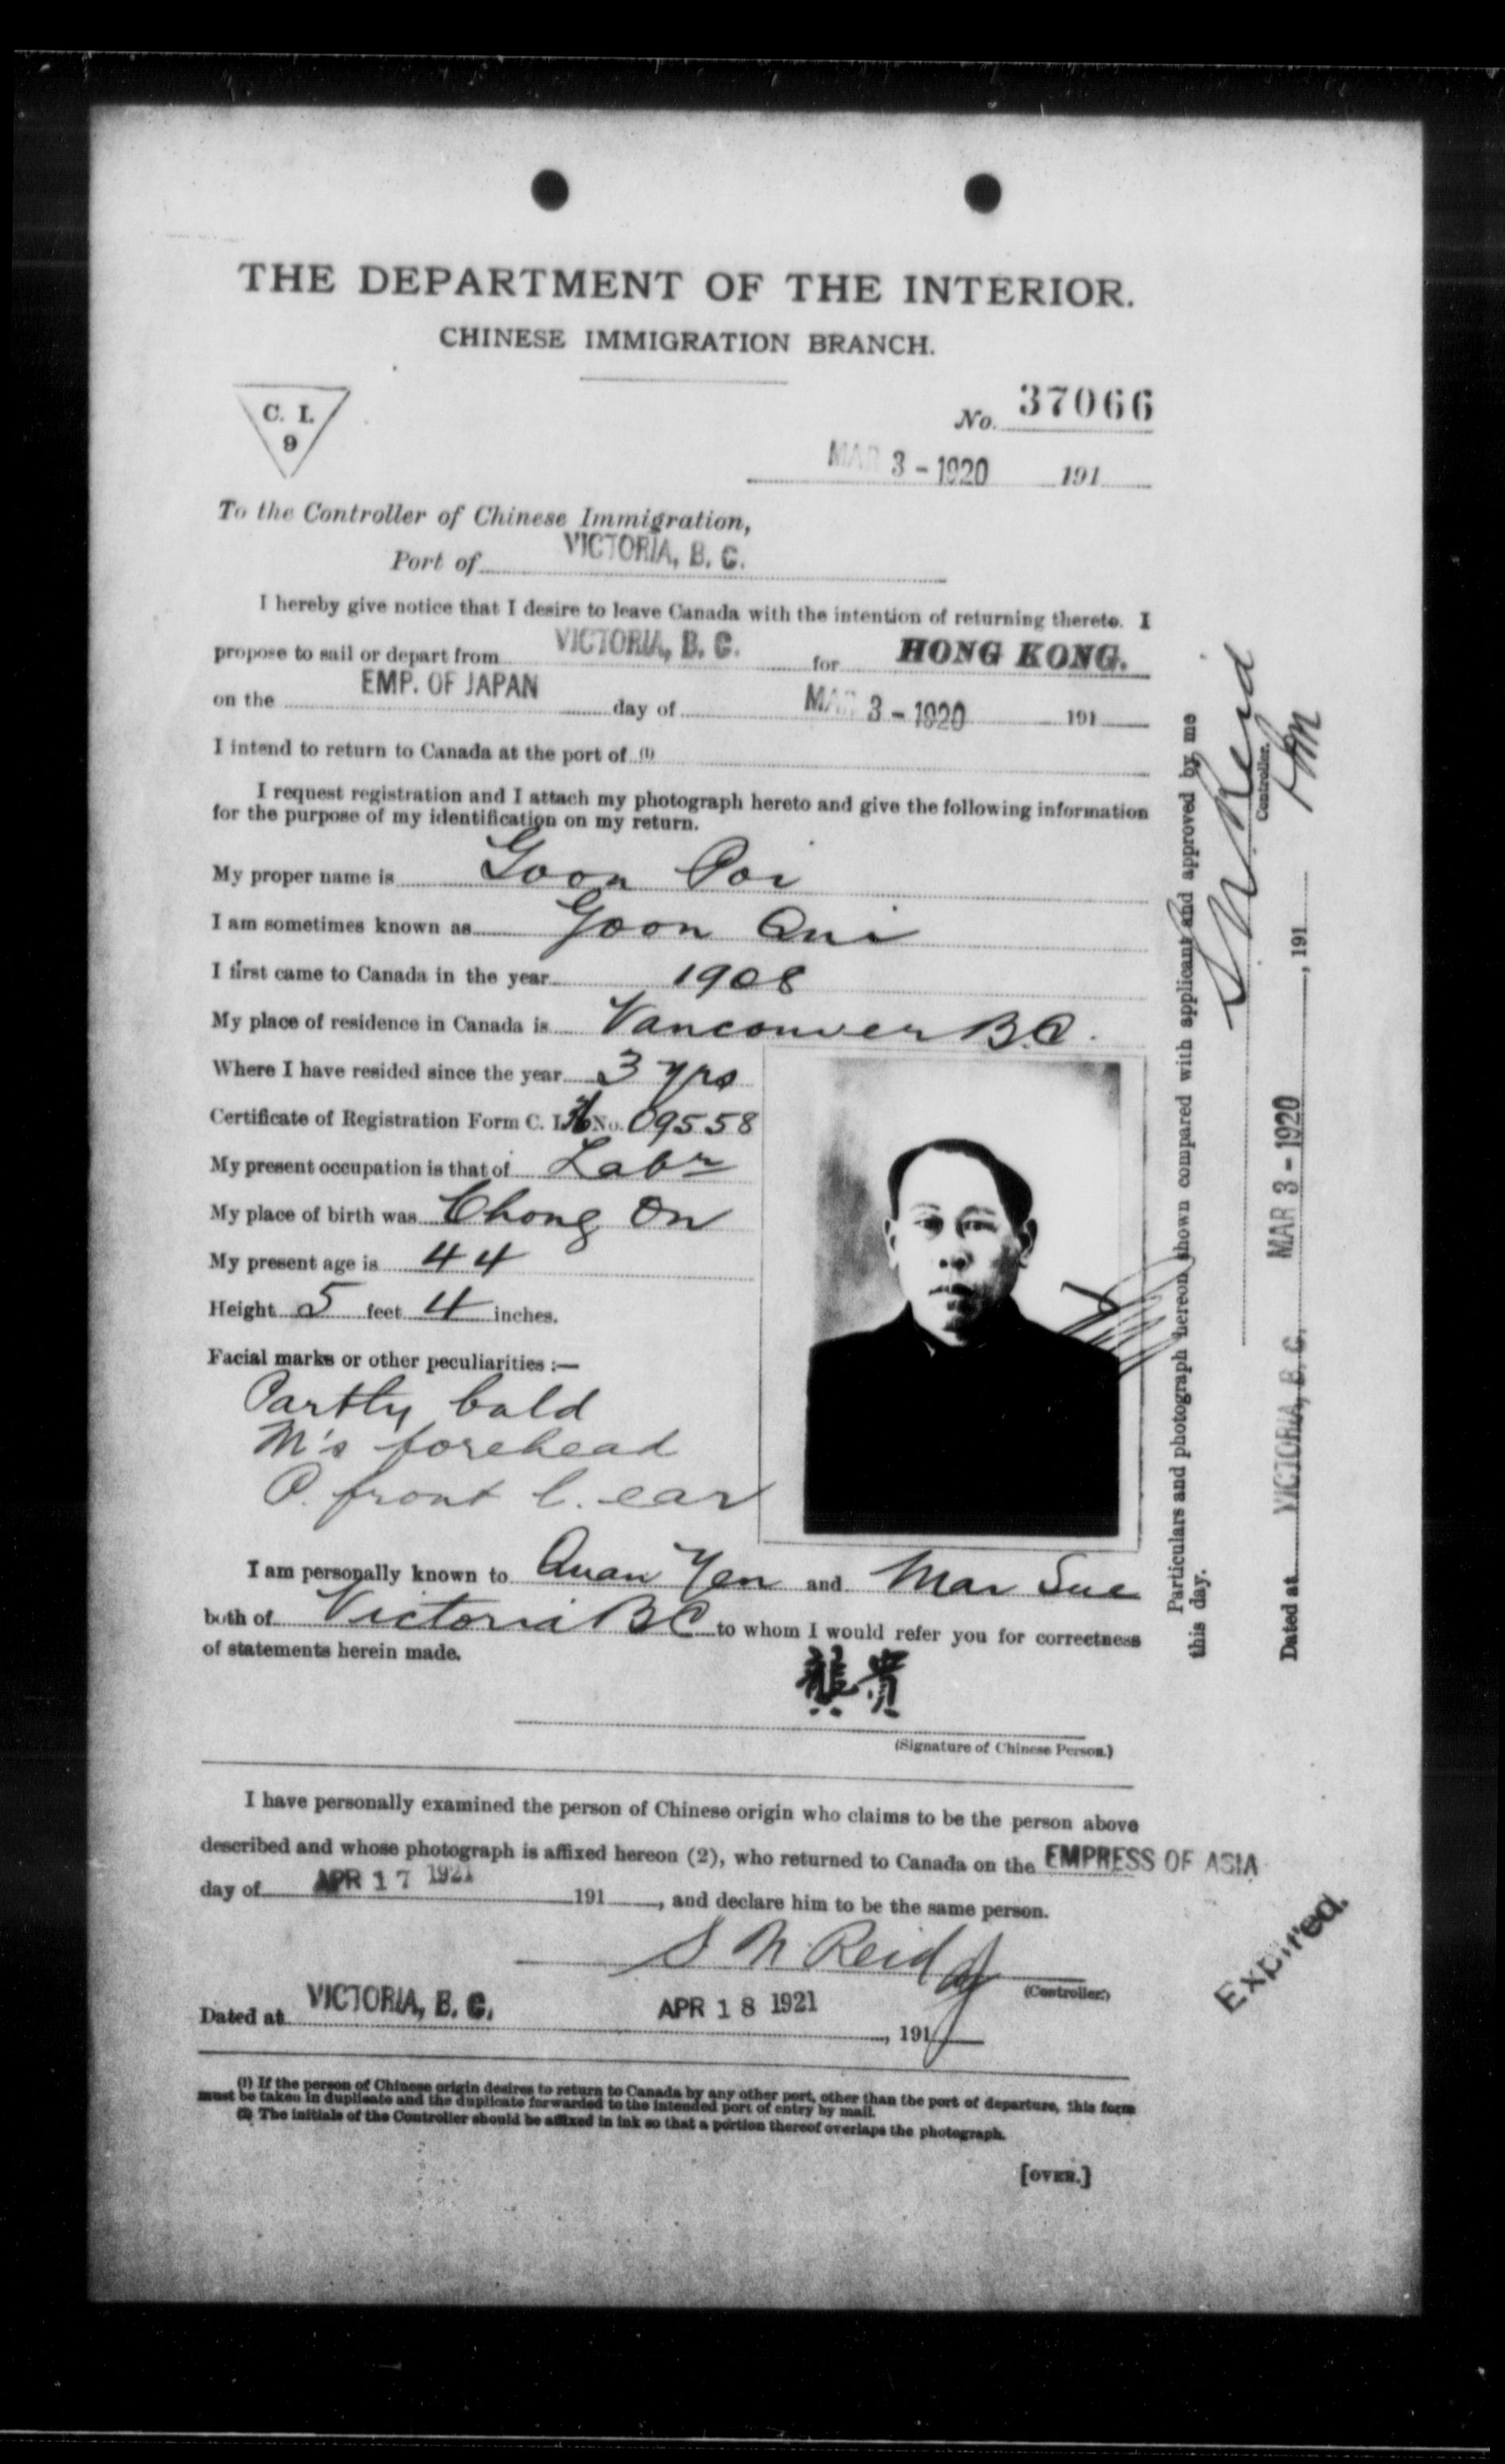 THE DEPARTMENT OF THE INTERIOR.
CHINESE IMMIGRATION BRANCH.
C. I.
9
No. 37066
MAR 3 - 1920 191
To the Controller of Chinese Immigration,
Port of VICTORIA, B. C.
I hereby give notice that I desire to leave Canada with the intention of returning thereto. I
propose to sail or depart from VICTORIA, B. C. for HONG KONG.
on the EMP. OF JAPAN day of MAR 3 - 1920 191
I intend to return to Canada at the port of (1)
I request registration and I attach my photograph hereto and give the following information
for the purpose of my identification on my return.
My proper name is Goon Poi
I am sometimes known as Goon Qui
I first came to Canada in the year 1908
My place of residence in Canada is Vancouver B.C.
Where I have resided since the year 3 yrs
Certificate of Registration Form C. I. No. 09558
My present occupation is that of Labr
My place of birth was Chong On
My present age is 44
Height 5 feet 4 inches.
Facial marks or other peculiarities :—
Partly bald
M's forehead
P. front l. ear
I am personally known to Quan Yen and Mar Sue
both of Victoria BC to whom I would refer you for correctness
of statements herein made.
龔貴
(Signature of Chinese Person.)
I have personally examined the person of Chinese origin who claims to be the person above
described and whose photograph is affixed hereon (2), who returned to Canada on the EMPRESS OF ASIA
day of APR 17 1921 191 , and declare him to be the same person.
S N Reid
(Controller.)
Dated at VICTORIA, B. C. APR 18 1921 , 191
Expired.
(1) If the person of Chinese origin desires to return to Canada by any other port, other than the port of departure, this form
must be taken in duplicate and the duplicate forwarded to the intended port of entry by mail.
(2) The initials of the Controller should be affixed in ink so that a portion thereof overlaps the photograph.
[OVER.]
Particulars and photograph hereon shown compared with applicant and approved by me
this day.
S N Reid
Controller.
Dated at VICTORIA, B. C. MAR 3 - 1920 , 191